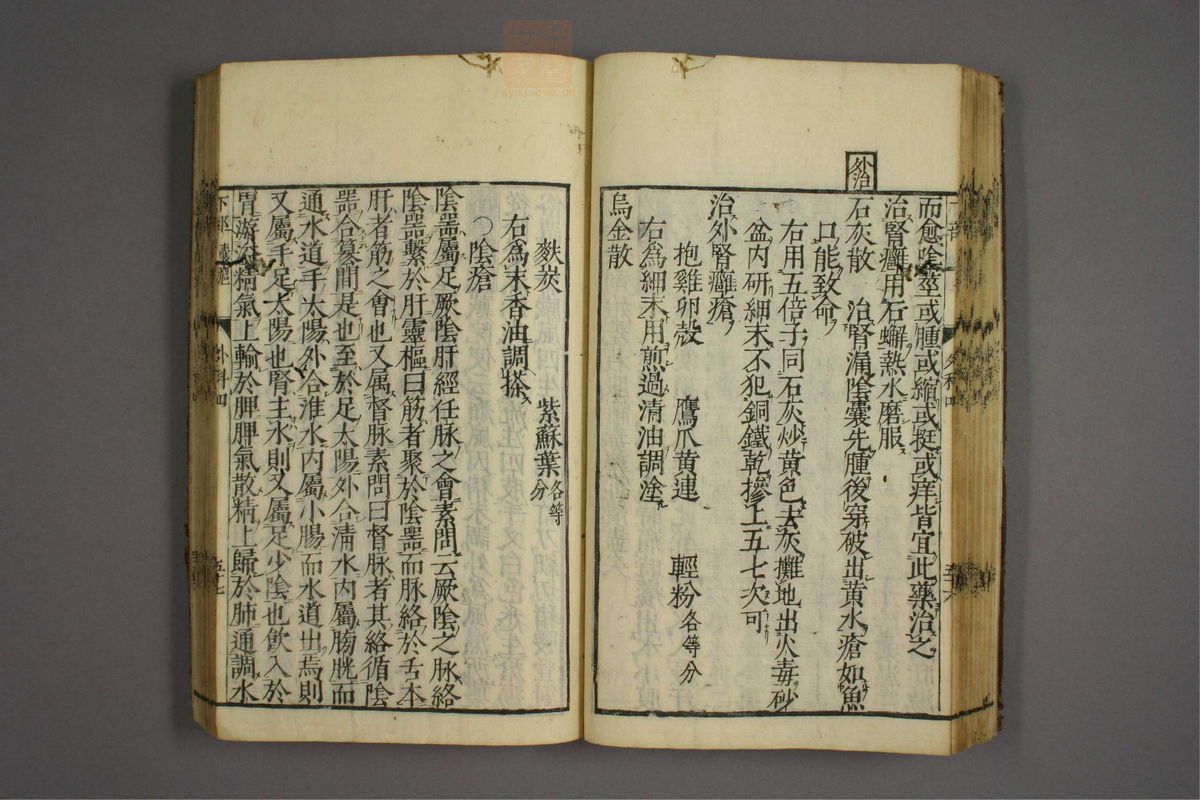 而愈陰莖或腫或縮或挺或痒皆宜此藥治之
治腎癰用石蠏熱水磨服
外治
石灰散 治腎漏陰囊先腫後穿破出黄水瘡如魚
口能致命
右用五倍子同石灰炒黄色去灰攤地出火毒砂
盆内研細末不犯銅鐵乾摻上五七次可
治外腎癰瘡
抱雞卵殼 鷹爪黄連 輕粉各等分
右為細末用煎過清油調塗
烏金散
麩炭 紫蘇葉各等分
右為末香油調搽
○陰瘡
陰器屬足厥陰肝經任脉之會素問云厥陰之脉絡
陰器繫於肝靈樞曰筋者聚於陰器而脉絡於舌本
肝者筋之會也又属督脉素問曰督脉者其絡循陰
器合篡間是也至於足太陽外合清水内屬膀胱而
通水道手太陽外合淮水内屬小腸而水道出焉則
又屬手足太陽也腎主水則又屬足少陰也飲入於
胃游溢精氣上輸於脾脾氣散精上歸於肺通調水